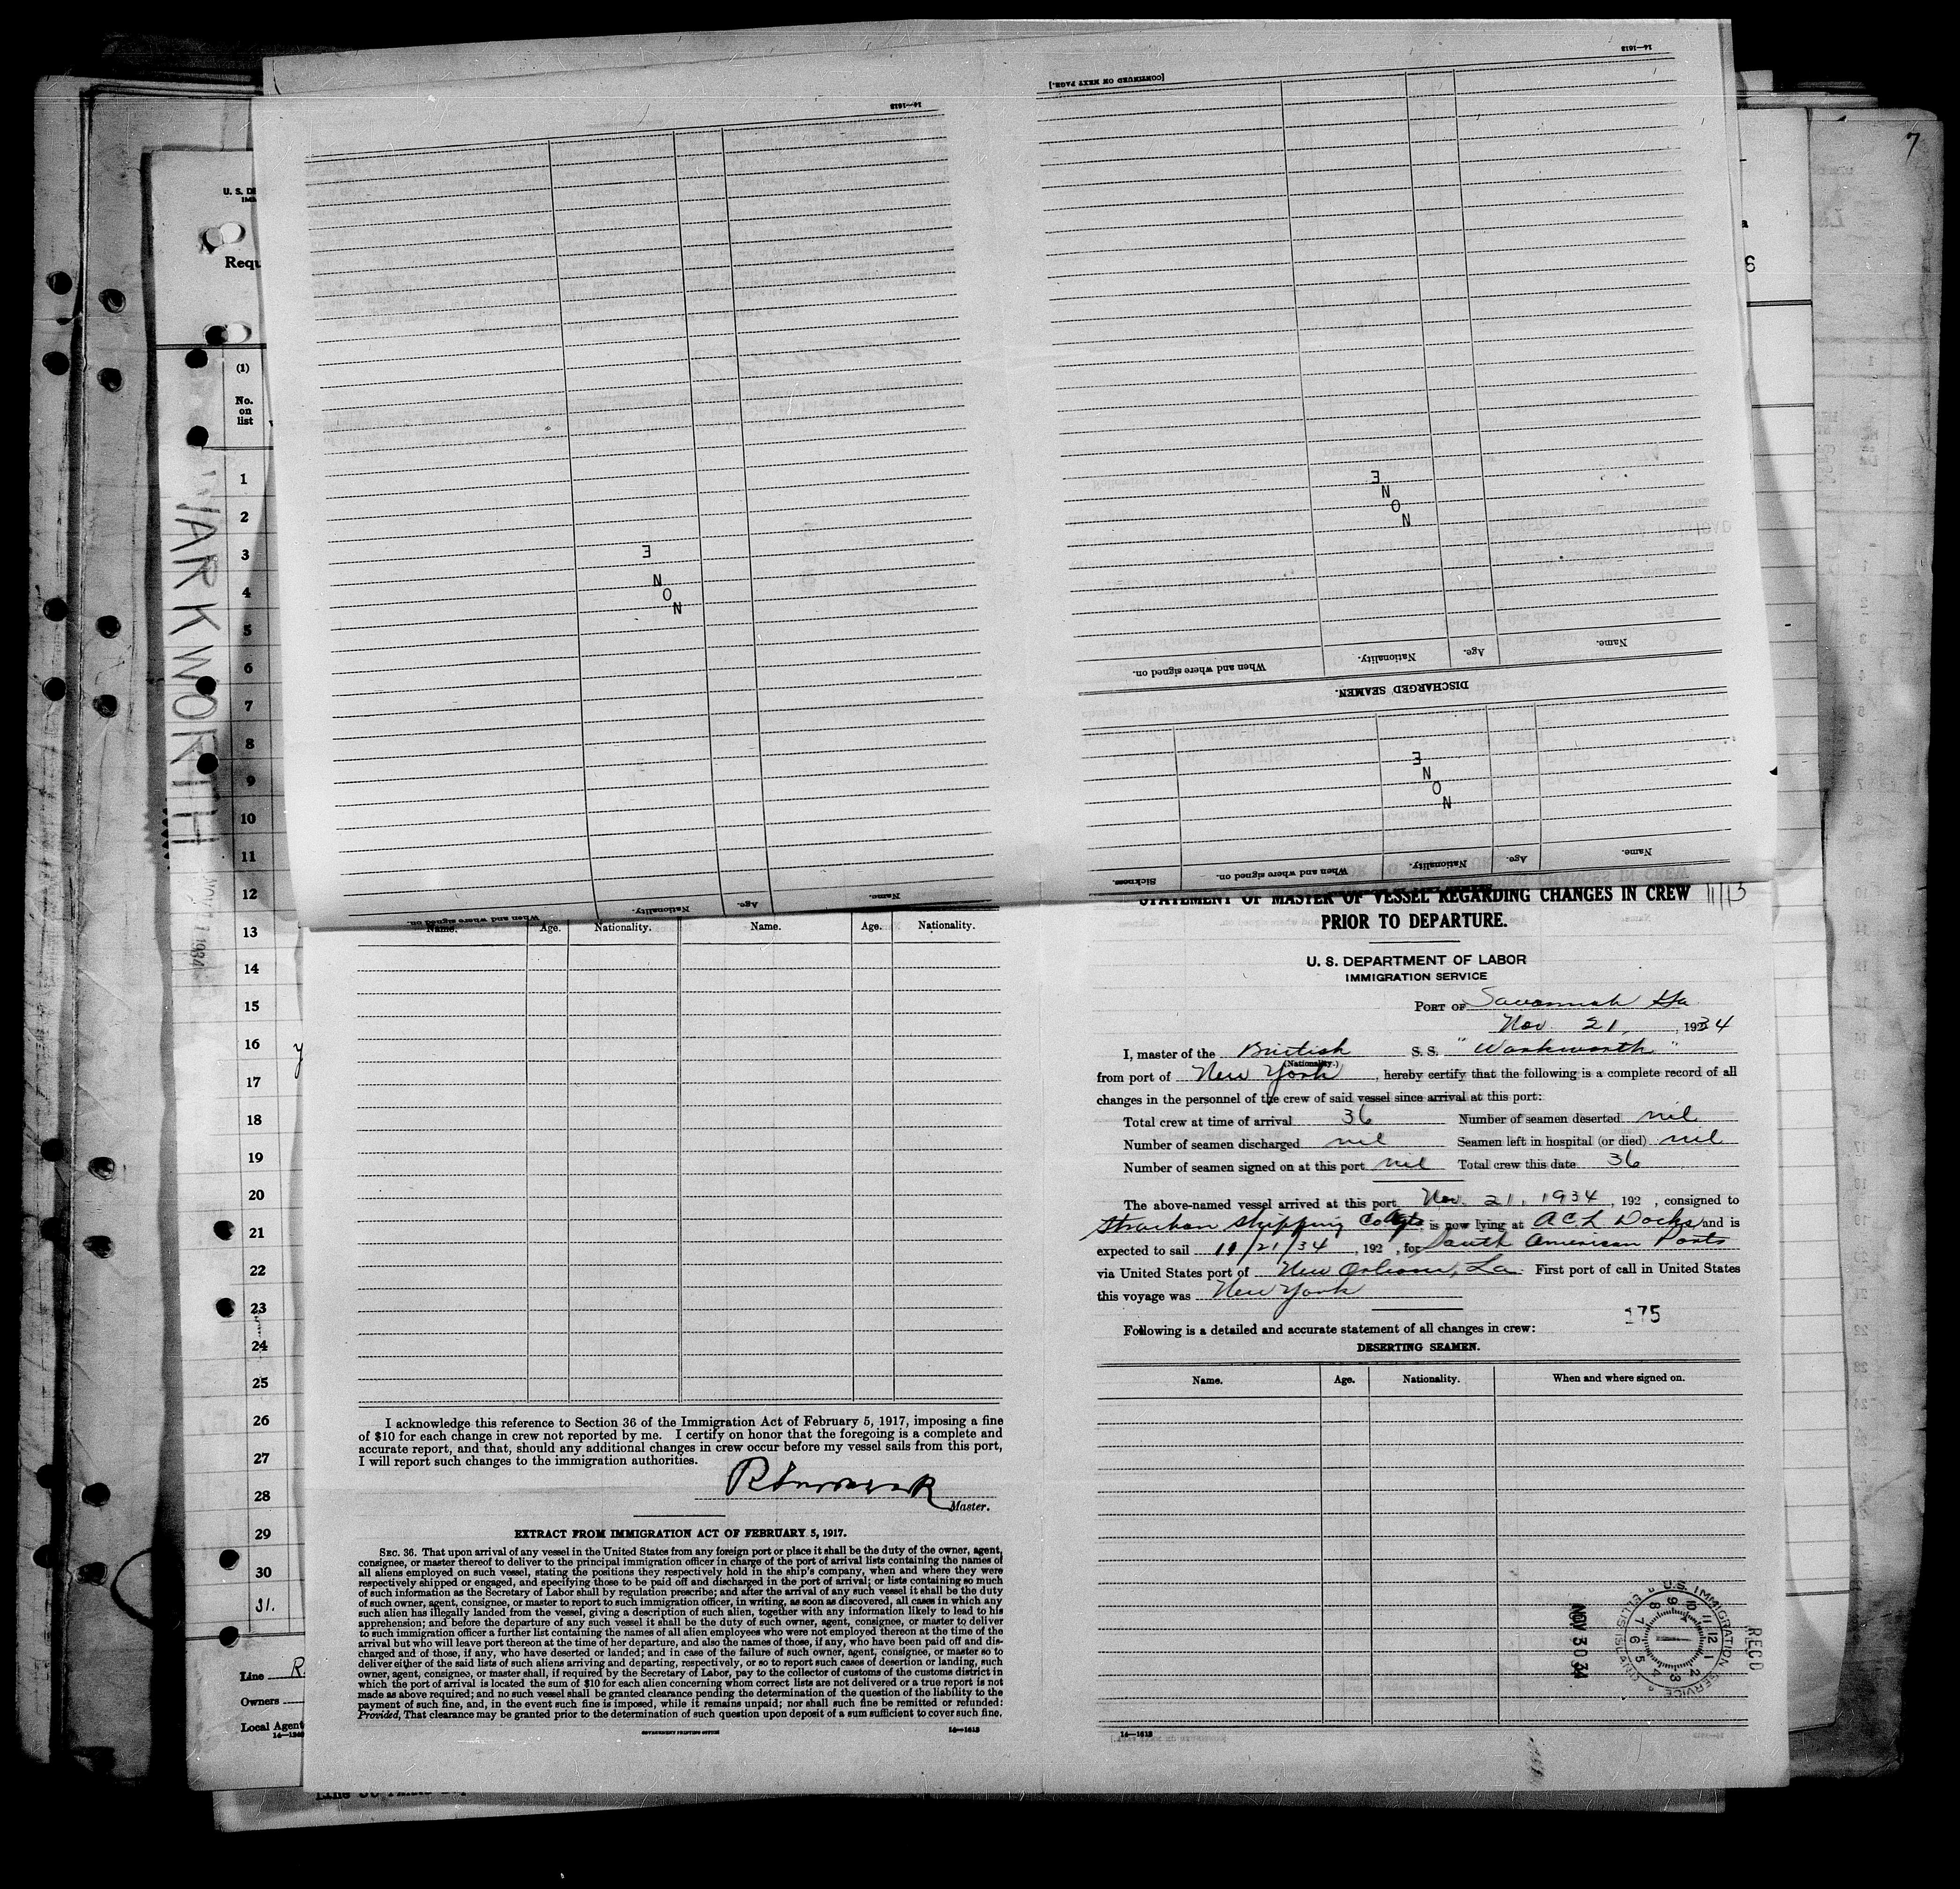 7
14—1613
14—1613
[CONTINUED ON NEXT PAGE.]
U. S. DE
Requ
(1)
No.
on
list
1
2
3
4
5
6
7
8
9
10
11
12
13
14
15
16
17
18
19
20
21
22
23
24
25
26
27
28
29
30
31.
WARKWORTH
Line R.
Owners
Local Agent
NONE
When and where signed on.
Nationality.
Age.
Name.
NONE
When and where signed on.
Nationality.
Age.
Name.
DISCHARGED SEAMEN.
NONE
Sickness.
When and where signed on.
Nationality.
Age.
Name.
Name. Age. Nationality. Name. Age. Nationality.
I acknowledge this reference to Section 36 of the Immigration Act of February 5, 1917, imposing a fine
of $10 for each change in crew not reported by me. I certify on honor that the foregoing is a complete and
accurate report, and that, should any additional changes in crew occur before my vessel sails from this port,
I will report such changes to the immigration authorities.
Master.
EXTRACT FROM IMMIGRATION ACT OF FEBRUARY 5, 1917.
SEC. 36. That upon arrival of any vessel in the United States from any foreign port or place it shall be the duty of the owner, agent,
consignee, or master thereof to deliver to the principal immigration officer in charge of the port of arrival lists containing the names of
all aliens employed on such vessel, stating the positions they respectively hold in the ship's company, when and where they were
respectively shipped or engaged, and specifying those to be paid off and discharged in the port of arrival; or lists containing so much
of such information as the Secretary of Labor shall by regulation prescribe; and after the arrival of any such vessel it shall be the duty
of such owner, agent, consignee, or master to report to such immigration officer, in writing, as soon as discovered, all cases in which any
such alien has illegally landed from the vessel, giving a description of such alien, together with any information likely to lead to his
apprehension; and before the departure of any such vessel it shall be the duty of such owner, agent, consignee, or master to deliver
to such immigration officer a further list containing the names of all alien employees who were not employed thereon at the time of the
arrival but who will leave port thereon at the time of her departure, and also the names of those, if any, who have been paid off and dis-
charged and of those, if any, who have deserted or landed; and in case of the failure of such owner, agent, consignee, or master so to
deliver either of the said lists of such aliens arriving and departing, respectively, or so to report such cases of desertion or landing, such
owner, agent, consignee, or master shall, if required by the Secretary of Labor, pay to the collector of customs of the customs district in
which the port of arrival is located the sum of $10 for each alien concerning whom correct lists are not delivered or a true report is not
made as above required; and no such vessel shall be granted clearance pending the determination of the question of the liability to the
payment of such fine, and, in the event such fine is imposed, while it remains unpaid; nor shall such fine be remitted or refunded:
Provided, That clearance may be granted prior to the determination of such question upon deposit of a sum sufficient to cover such fine.
GOVERNMENT PRINTING OFFICE 14—1613
STATEMENT OF MASTER OF VESSEL REGARDING CHANGES IN CREW 11/13
PRIOR TO DEPARTURE.
U. S. DEPARTMENT OF LABOR
IMMIGRATION SERVICE
PORT OF Savannah Ga
Nov. 21, 1934
I, master of the British S. S. "Warkworth"
(Nationality.)
from port of New York, hereby certify that the following is a complete record of all
changes in the personnel of the crew of said vessel since arrival at this port:
Total crew at time of arrival 36 Number of seamen deserted nil
Number of seamen discharged nil Seamen left in hospital (or died) nil
Number of seamen signed on at this port nil Total crew this date 36
The above-named vessel arrived at this port Nov. 21, 1934, 192 , consigned to
Strachan Shipping Co Agts is now lying at A C L Docks and is
expected to sail 11/21/34, 192 , for South American Ports
via United States port of New Orleans, La. First port of call in United States
this voyage was New York
175
Following is a detailed and accurate statement of all changes in crew:
DESERTING SEAMEN.
Name. Age. Nationality. When and where signed on.
REC'D
U.S. IMMIGRATION SERVICE
ELLIS ISLAND
NOV 30 34
14—1613